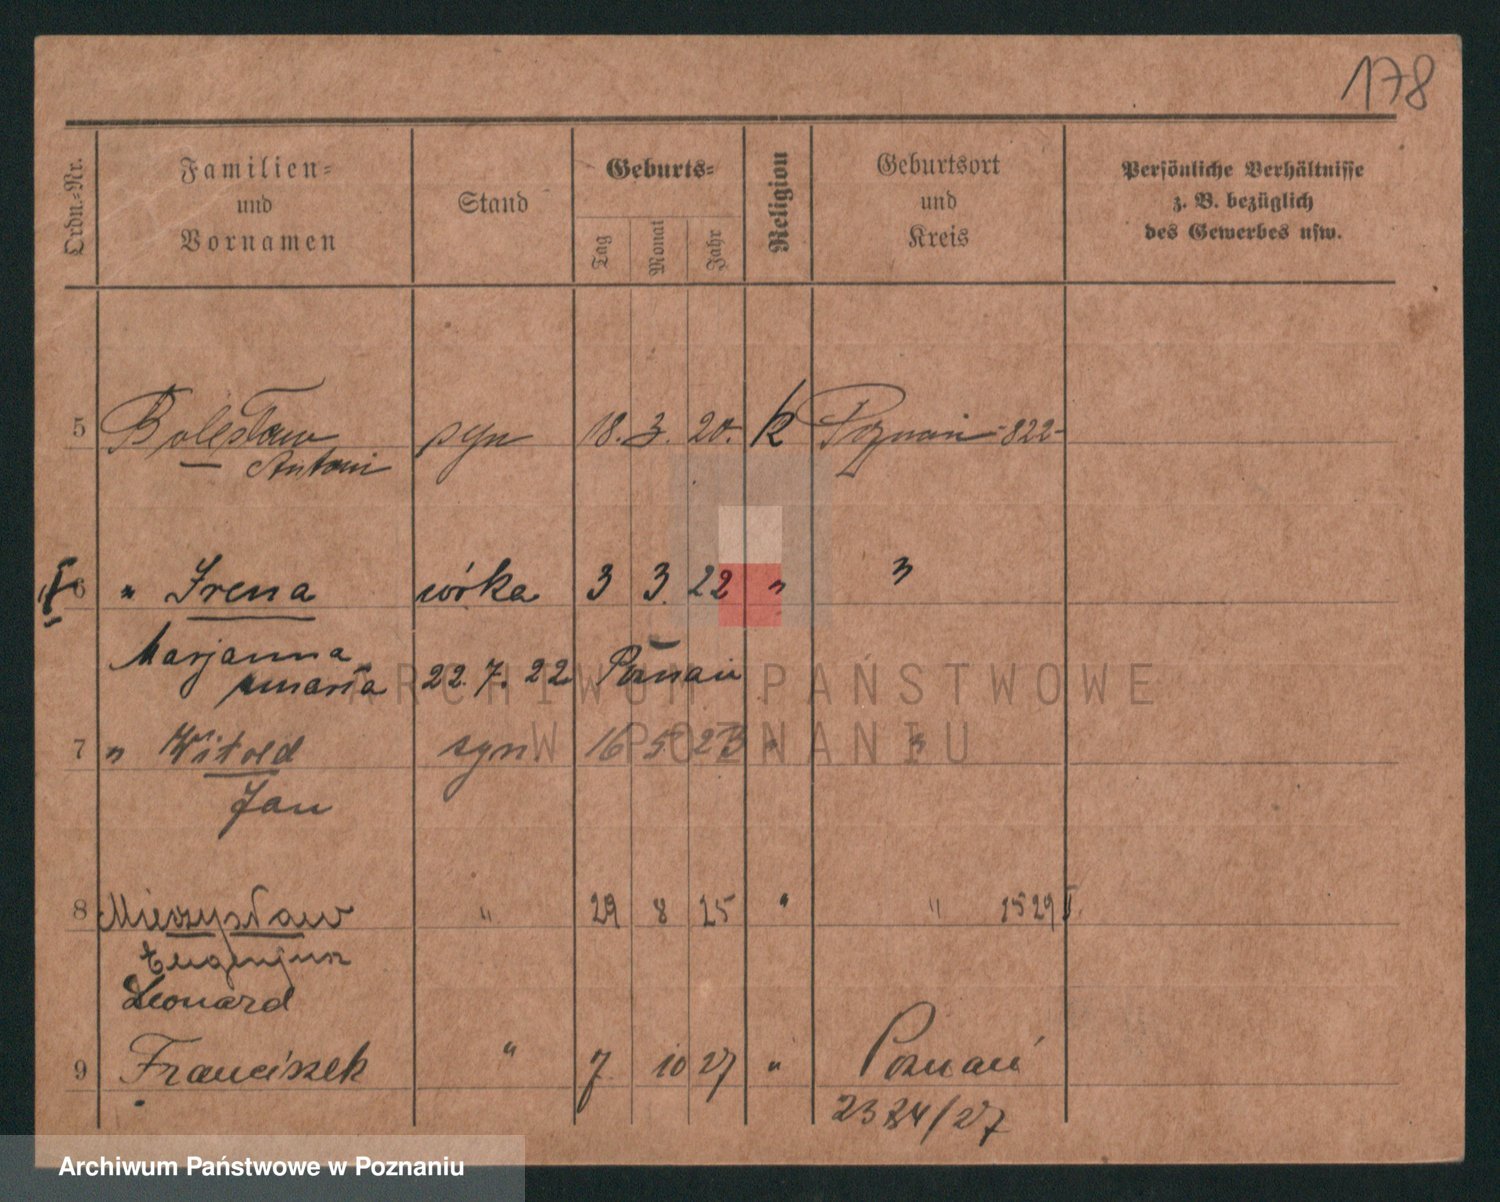 178
Ordn.-Nr.
Familien-
und
Vornamen
Stand
Geburts-
Tag
Monat
Jahr
Religion
Geburtsort
und
Kreis
Persönliche Verhältnisse
z. B. bezüglich
des Gewerbes usw.
5 Bolesław syn 18. 3. 20. k Poznań -822-
Antoni
6 " Irena córka 3 3 22 " "
Marjanna
Maria 22. 7. 22 Poznań
ARCHIWUM PAŃSTWOWE
W POZNANIU
7 " Witold syn 16 5 23 " "
Jan
8 Mieczysław " 29 8 25 " " 1529
Eugenjusz
Leonard
9 Franciszek " 7 10 27 " Poznań
2384/27
Archiwum Państwowe w Poznaniu